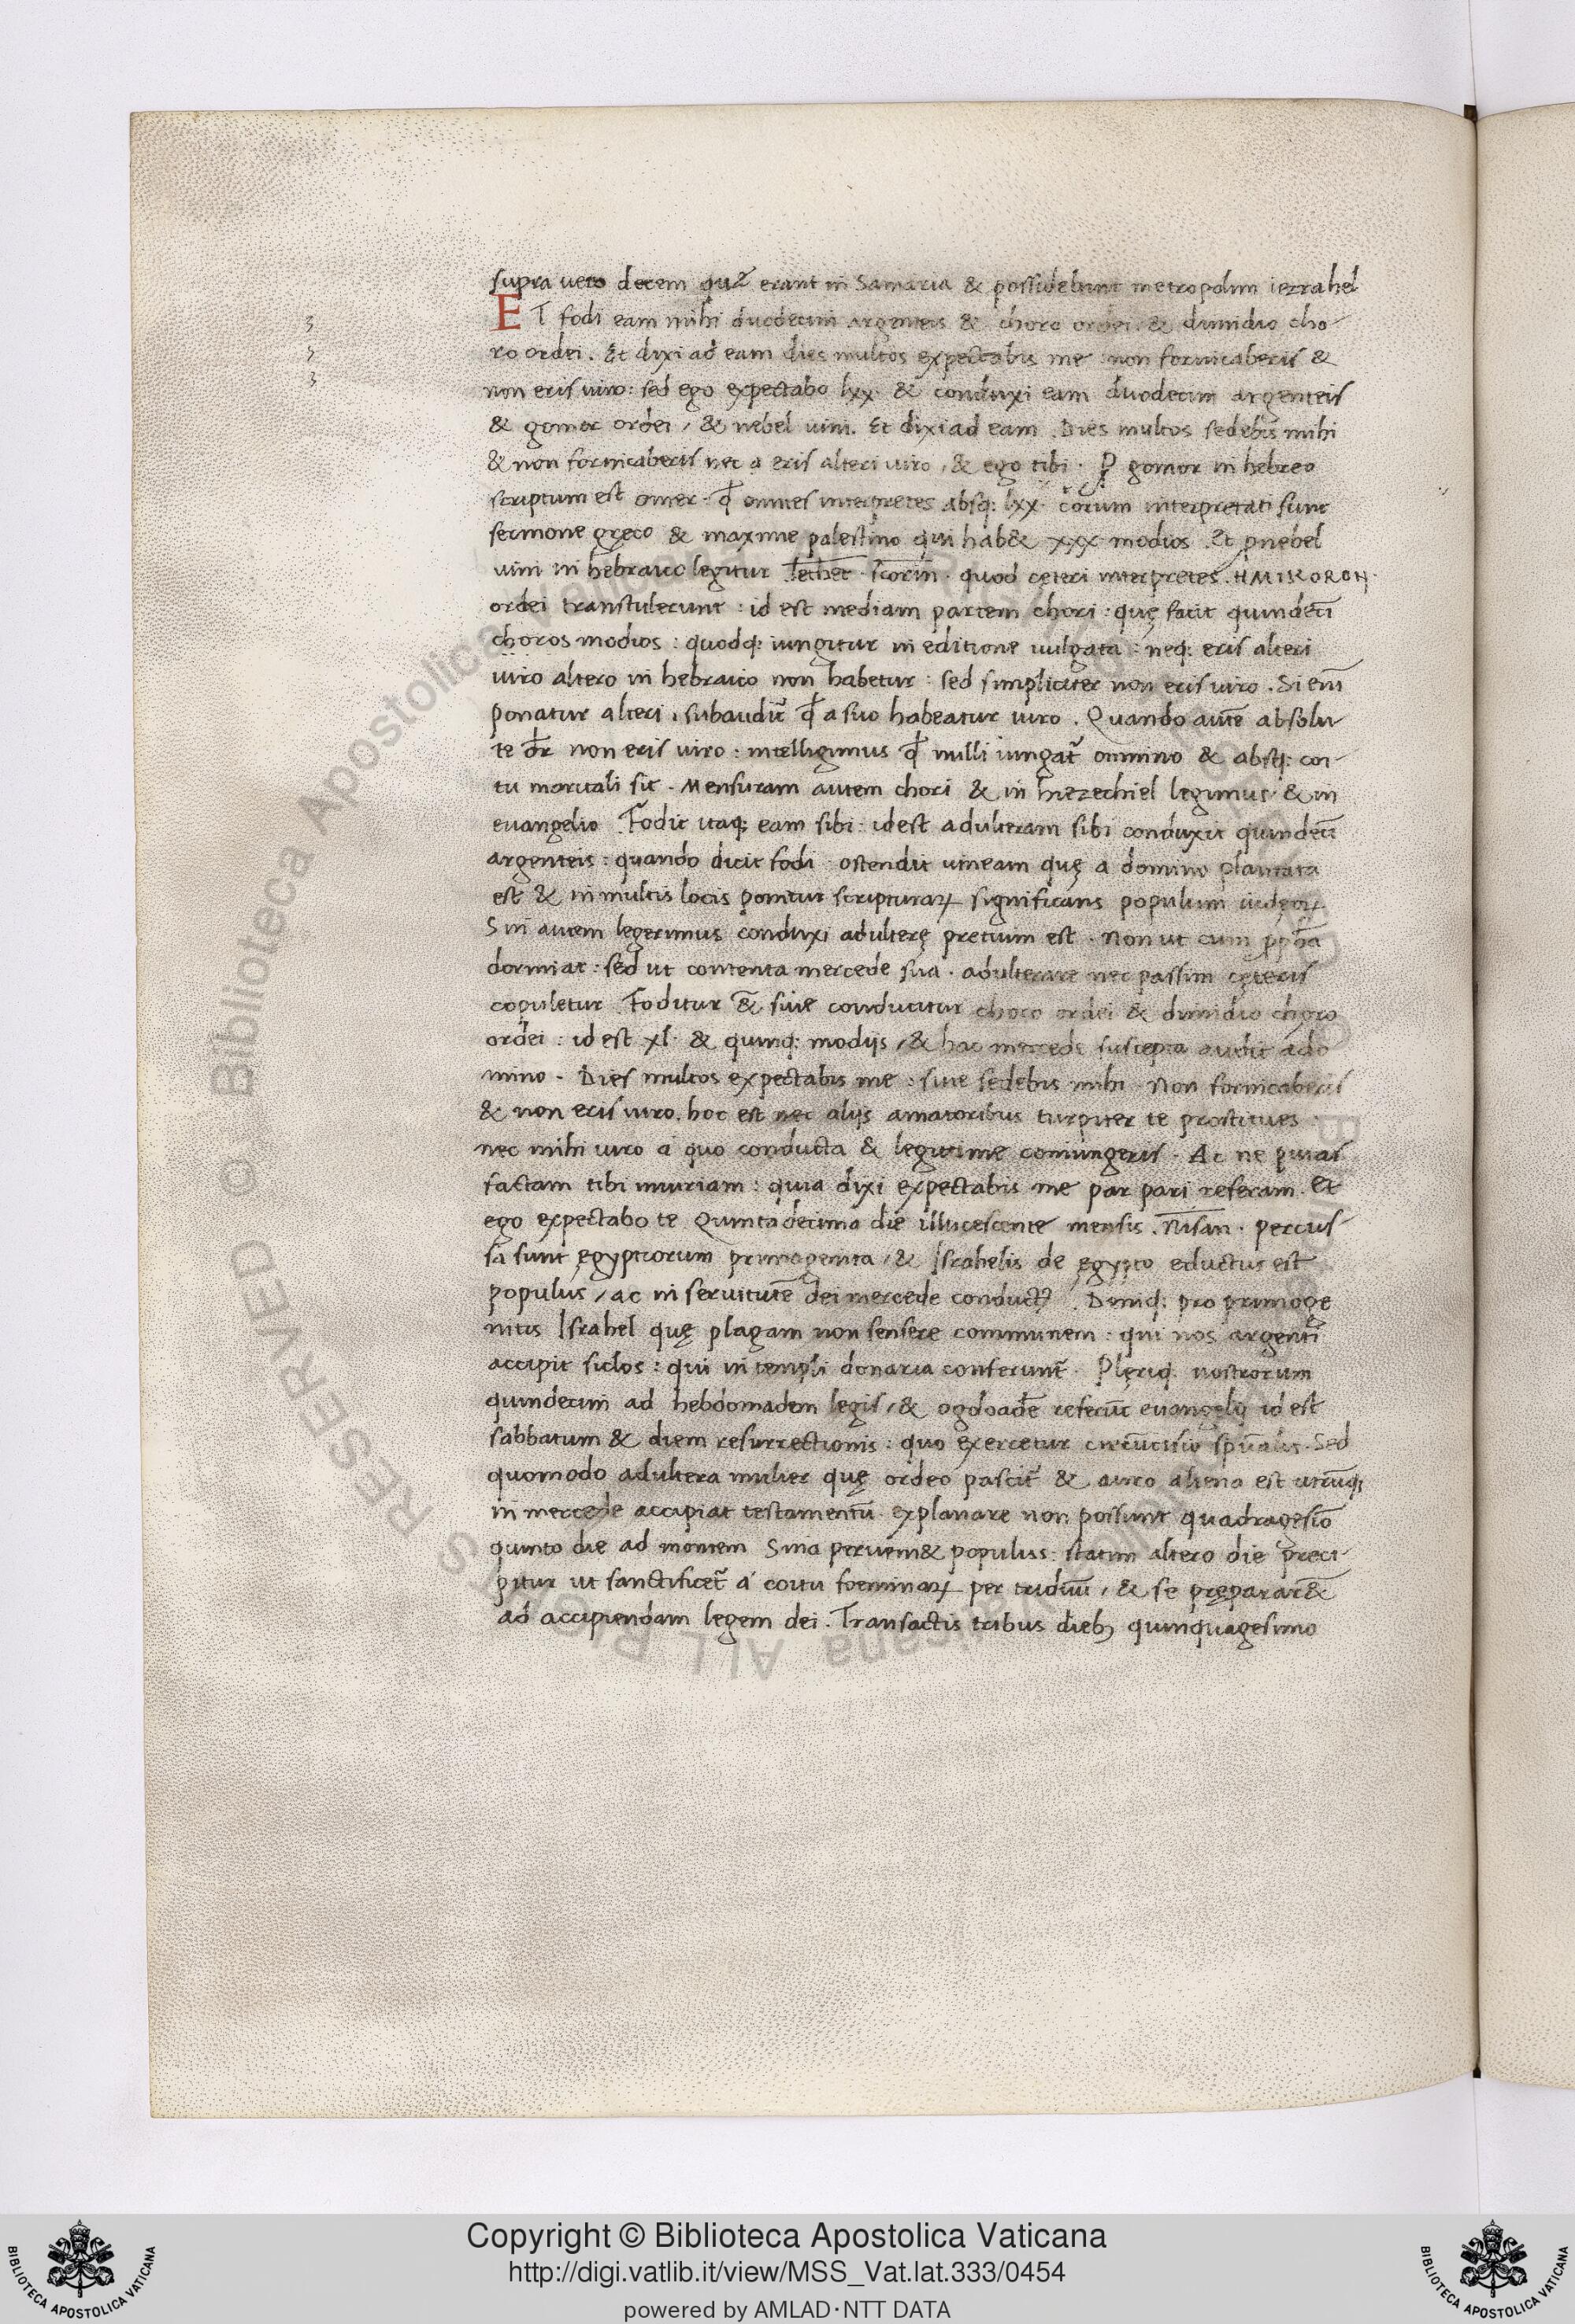 supra uero decem quę erant in Samaria & possidebunt metropolim iezrahel
ET fodi eam mihi duodecim argenteis & choro ordei & dimidio cho-
ro ordei. Et dixi ad eam dies multos expectabis me non fornicaberis &
non eris uiro: sed ego expectabo lxx. & conduxi eam duodecim argenteis
& gomor ordei, & nebel uini. Et dixi ad eam. Dies multos sedebis mihi
& non fornicaberis nec eris alteri uiro, & ego tibi. P̱ gomor in hebreo
scriptum est omer. qđ omnes interpretes absq; lxx. corum interpretati sunt
sermone gręco & maxime palestino qui hab& xxx modios. Et p nebel
uini in hebraico legitur lethec. scorim. quod cęteri interpretes. HMIKORON.
ordei transtulerunt: id est mediam partem chori: quę facit quindecī
choros modios: quodq; iungitur in editione uulgata: neq; eris alteri
uiro altero in hebraico non habetur: sed simpliciter non eris uiro. Si enī
ponatur alteri, subaudit̄ qđ a suo habeatur uiro. Quando autē absolu-
te dr̄ non eris uiro: intelligimus qđ nulli iungat̄ omnino & absq; coi-
tu maritali sit. Mensuram autem chori & in hiezechiel legimus & in
euangelio Fodit itaq; eam sibi: id est adulteram sibi conduxit quindecī
argenteis: quando dicit fodi ostendit uineam quę a domino plantata
est & in multis locis ponitur scripturaꝝ significans populum iudęoꝝ
Sin autem legerimus conduxi adulterę pretium est. Non ut cum
dormiat: sed ut contenta mercede sua. adulterare nec passim cęteris
copuletur Foditur siue conducitur choro ordei & dimidio choro
ordei: id est xl. & quinq; modijs, & hac mercede suscepta audit ado
mino. Dies multos expectabis me: siue sedebis mihi Non fornicaberis
& non eris uiro. hoc est nec alijs amatoribus turpiter te prostitues
nec mihi uiro á quo conducta & legitime coniungeris. Ac ne putas
factam tibi iniuriam: quia dixi expectabis me par pari referam. Et
ego expectabo te Quintadecima die illucescente mensis. Nisan. percus-
si sunt ęgyptiorum primogenita, & Israhelis de ęgypto eductus est
populus, ac in seruitutē dei mercede conductꝰ. Deniq; pro primoge
nitis Israhel quę plagam non sensere communem: qui nos argenti
accipit siclos: qui in templi donaria conferunt̄. Plęriq; nostrorum
quindecim ad hebdomadem legis, & ogdoadē referūt euangelij id est
sabbatum & diem resurrectionis: quo exercetur circūcisio sp̄ualis. Sed
quomodo adultera mulier quę ordeo pascit̄ & auro aliena est utrūq;
in mercede accipiat testamentū explanare non possunt quadragesimo
quinto die ad montem Sina peruen& populus: statim altero die preci-
pitur ut sanctificet̄ á coitu foeminaꝝ per triduū, & se pręparar&
ad accipiendam legem dei. Transactis tribus dieb; quinquagesimo
3
3
3
Copyright © Biblioteca Apostolica Vaticana
http://digi.vatlib.it/view/MSS_Vat.lat.333/0454
powered by AMLAD·NTT DATA
BIBLIOTECA APOSTOLICA VATICANA
BIBLIOTECA APOSTOLICA VATICANA